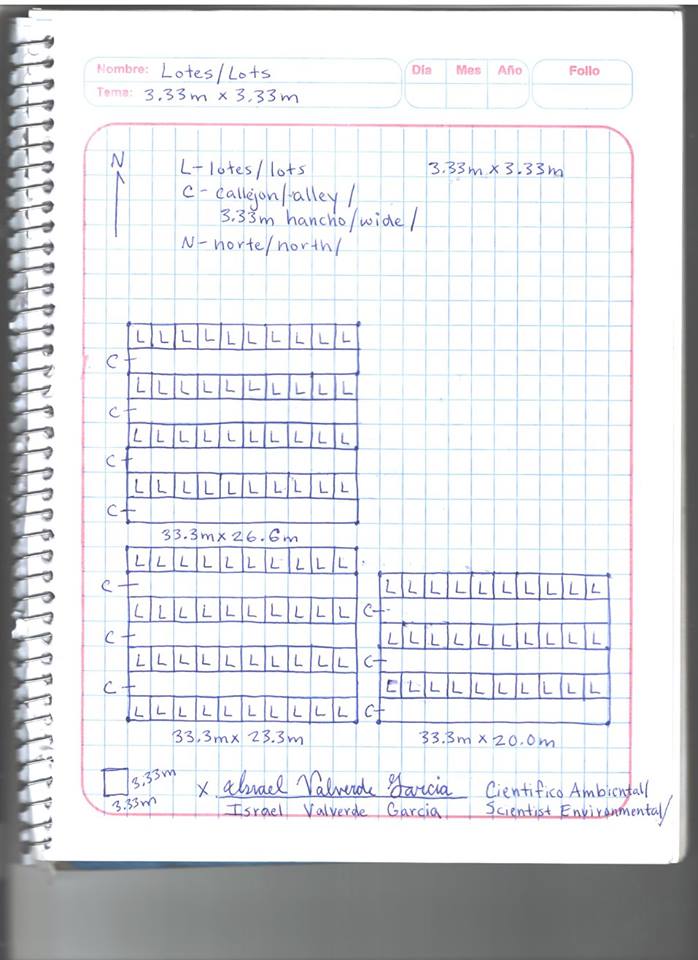 Nombre: Lotes/Lots
Tema: 3.33m x 3.33m
Día Mes Año Folio
N
L-lotes/lots
3.33m x 3.33m
C-callejon/alley/
3.33m hancho/wide/
N-norte/north/
L L L L L L L L L L
C
L L L L L L L L L L
C
L L L L L L L L L L
C
L L L L L L L L L L
C
33.3m x 26.6m
L L L L L L L L L L
C
L L L L L L L L L L
C
L L L L L L L L L L
C
L L L L L L L L L L
33.3m x 23.3m
L L L L L L L L L L
C
L L L L L L L L L L
C
L L L L L L L L L L
C
33.3m x 20.0m
3.33m
3.33m
x Israel Valverde Garcia
Israel Valverde Garcia
Cientifico Ambiental/
Scientist Environmental/